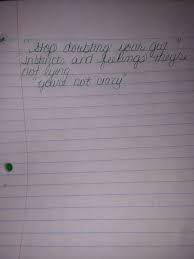 "Stop doubting your gut
instincts and feelings they're
not lying
"you're not crazy"